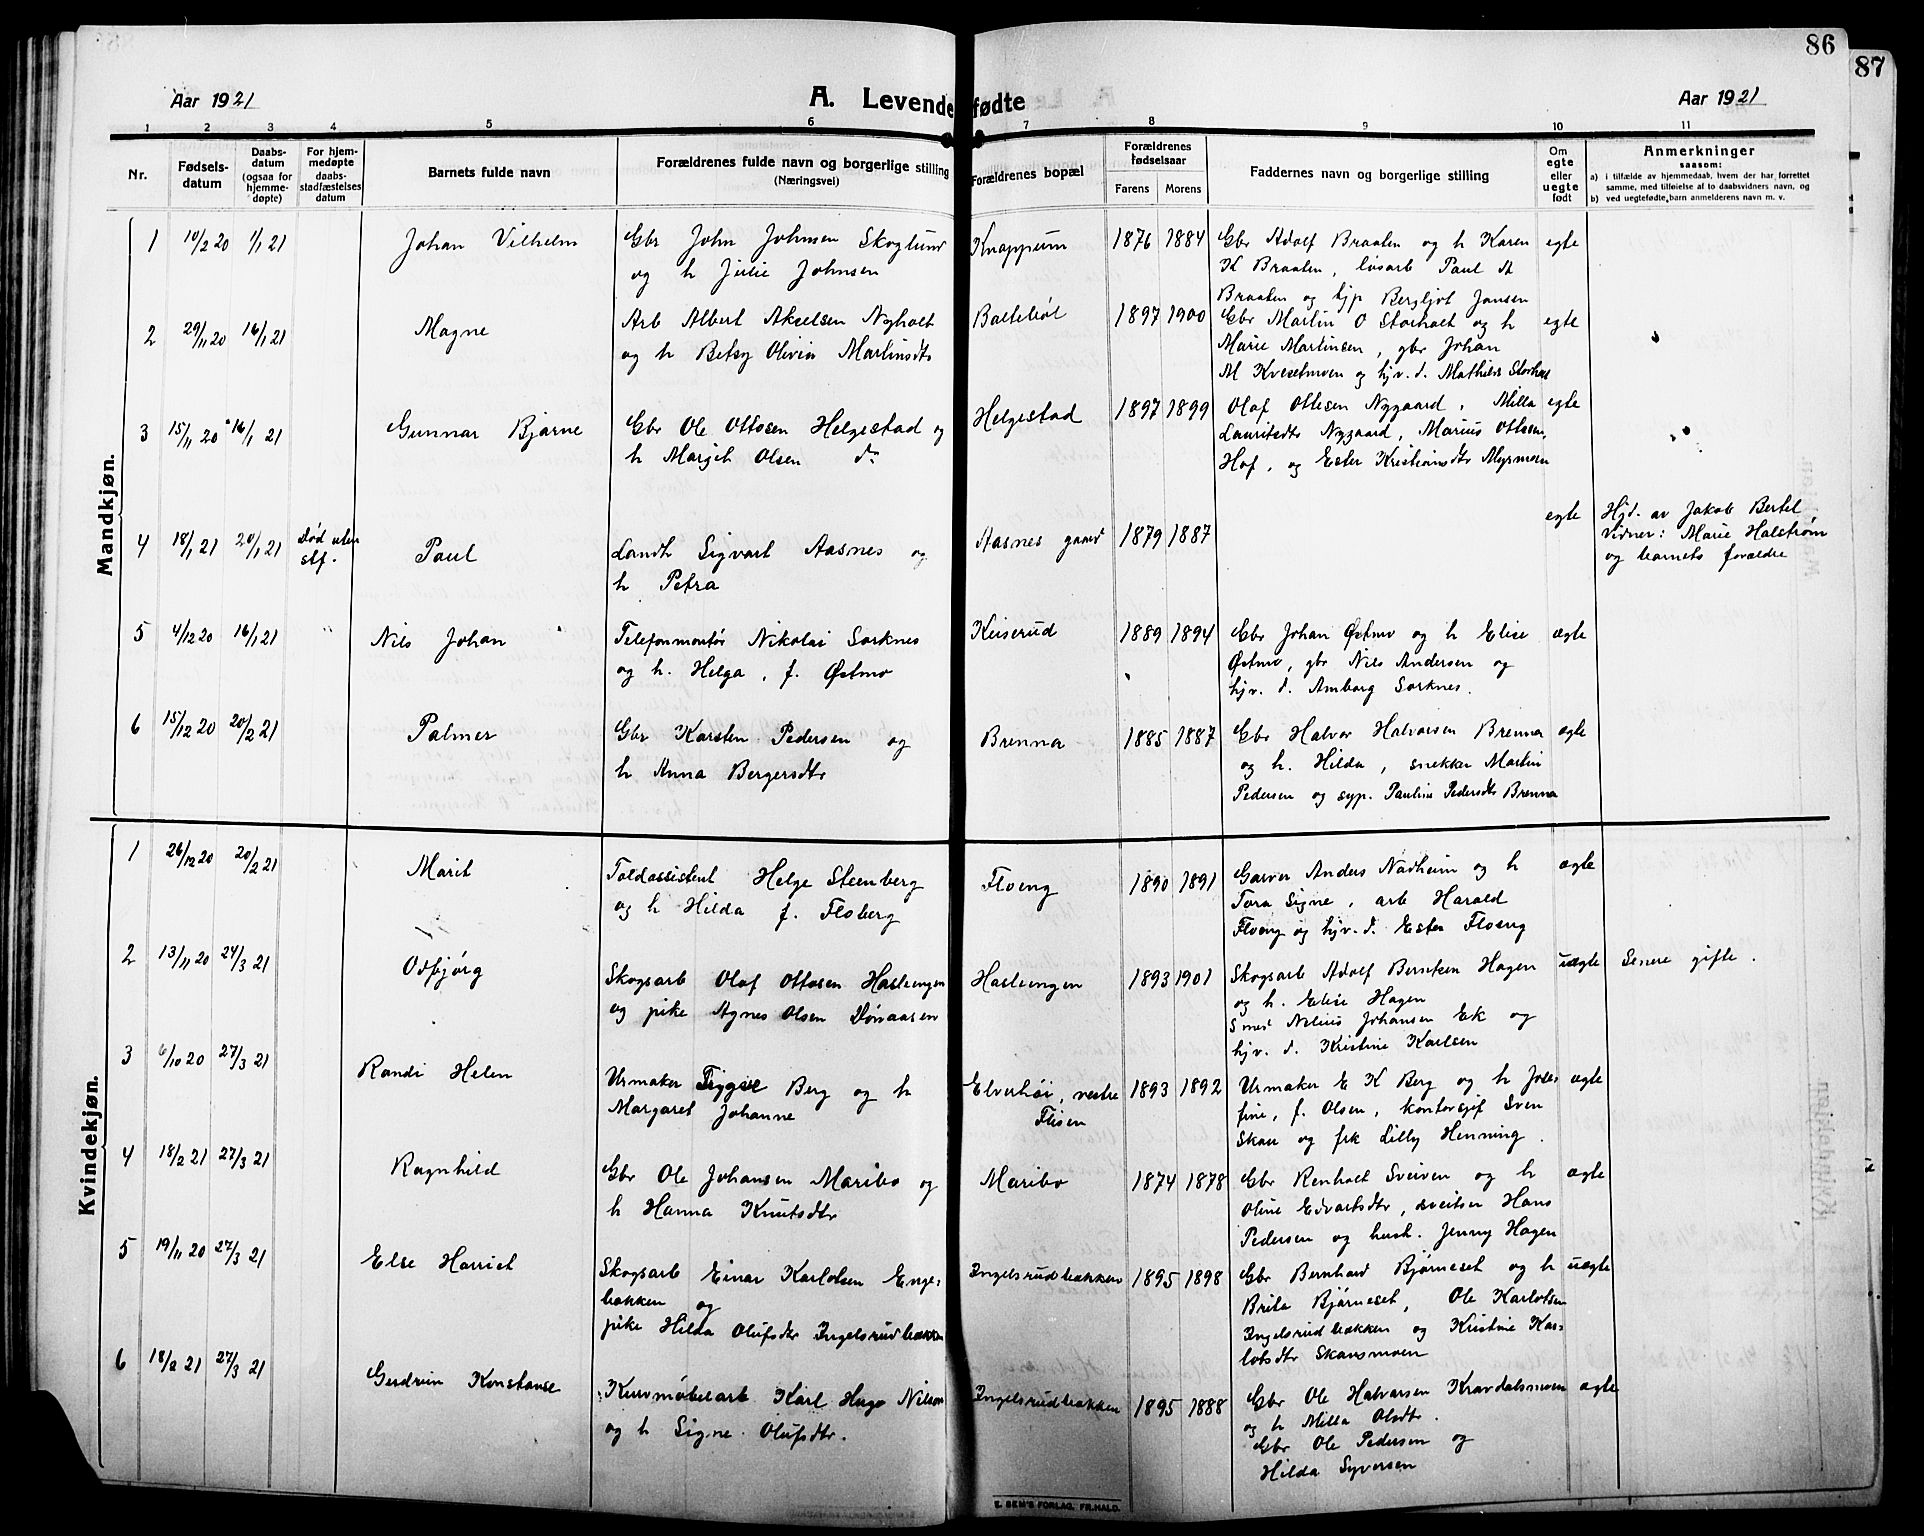 86
87
Aar 1921
A. Levendefødte
Aar 1921
1 2 3 4 5 6 7 8 9 10 11
Nr.
Fødsels-
datum
Daabs-
datum
(ogsaa for
hjemme-
døpte)
For hjem-
medøpte
daabs-
stadfæstelses
datum
Barnets fulde navn
Forældrenes fulde navn og borgerlige stilling
(Næringsvei)
Forældrenes bopæl
Forældrenes
fødselsaar
Farens Morens
Faddernes navn og borgerlige stilling
Om
egte
eller
uegte
født
Anmerkninger
saasom:
a) i tilfælde av hjemmedaab, hvem der har forrettet
samme, med tilføielse af to daabsvidners navn, og
b) ved uegtefødte barn anmelderens navn m. v.
Mandkjøn.
1 10/2 20 1/1 21 Johan Vilhelm Gbr John Johnsen Skoglund Knappum 1876 1884 Gbr Adolf Braaten og h Karen egte
og h Julie Johnsen K Braaten, løsarb Paul A
Braaten og hjp Bergljot Jansen
2 29/11 20 16/1 21 Magne Arb Albert Akselsen Nyholt Baltebøl 1897 1900 Gbr Martin O Storholt og h egte
og h Betsy Olivia Martinsdtr Marie Martinsen, gbr Johan
M Kvesetmoen og hjv. d. Mathilde Storholt
3 15/11 20 16/1 21 Gunnar Bjarne Gbr Ole Ottosen Helgestad og Helgestad 1897 1899 Olaf Ottesen Nygaard, Milla egte
h Margit Olsen do Lauritsdtr Nygaard, Marius Ottosen,
Hof, og Ester Kristiansdtr Myrmoen
4 18/1 21 20/1 21 Død uten Paul Landh Sigvart Aasnes og Aasnes gaard 1879 1887 egte Hjd. av Jakob Bertel
stf. h Petra Vidner: Marie Halstrøm
og barnets forældre
5 4/12 20 16/1 21 Nils Johan Telefonmontør Nikolai Sorknes Keiserud 1889 1894 Gbr Johan Østmo og h Elise ægte
og h. Helga, f. Østmo Østmo, gbr Nils Andersen og
hjv. d. Amborg Sorknes.
6 15/12 20 20/2 21 Palmer Gbr Karsten Pedersen og Brenna 1885 1887 Gbr Halvor Halvorsen Brenna ægte
h Anna Bergersdtr og h. Hilda, snekker Martin
Pedersen og syp. Pauline Pedersdtr Brenna
Kvindekjøn.
1 26/12 20 20/2 21 Marit Toldassistent Helge Steenberg Floeng 1890 1891 Garver Anders Nadheim og h ægte
og h Hilda f. Floberg Tora Signe, arb Harald
Floeng og hjv. d. Ester Floeng
2 13/11 20 24/3 21 Odbjørg Skogsarb Olaf Ottosen Hasleengen Hasleengen 1893 1901 Skogsarb Adolf Berntsen Hagen uægte Senere gifte.
og pike Agnes Olsen Dønaasen og h. Elise Hagen
Smed Nelius Johansen Ek og
hjv. d. Kristine Karlsen
3 6/10 20 27/3 21 Randi Helen Urmaker Trygve Berg og h Elverhøi, vestre 1893 1892 Urmaker E K Berg og h Jose- ægte
Margaret Johanne Flisen fine, f. Olsen, kontorsjef Sven
Skau og frk Lilly Henning.
4 18/2 21 27/3 21 Ragnhild Gbr Ole Johansen Maribo og Maribo 1874 1878 Gbr Renholt Sveiven og h ægte
h Hanna Knutsdtr Oline Edvartsdtr, sveitser Hans
Pedersen og hush. Jenny Hagen
5 19/11 20 27/3 21 Else Harriet Skogsarb Einar Karlotsen Enge- Ingelsrudbækken 1895 1898 Gbr Bernhard Bjørneset og h uægte
bækken og Brita Bjørneset, Ole Karlotsen
pike Hilda Olufsdtr Ingelsrudbækken Ingelsrudbækken og Kristine Kar-
lotsdtr Skansmoen
6 18/2 21 27/3 21 Gerdrun Konstanse Kurvmøbelarb Karl Hugo Nilsen Ingelsrudbækken 1895 1888 Gbr Ole Halvorsen Kravdalsmoen ægte
og h Signe Olufsdtr. og h Milla Olsdtr.
Gbr Ole Pedersen og
Hilda Syversen
E. SEM'S FORLAG. FR.HALD.